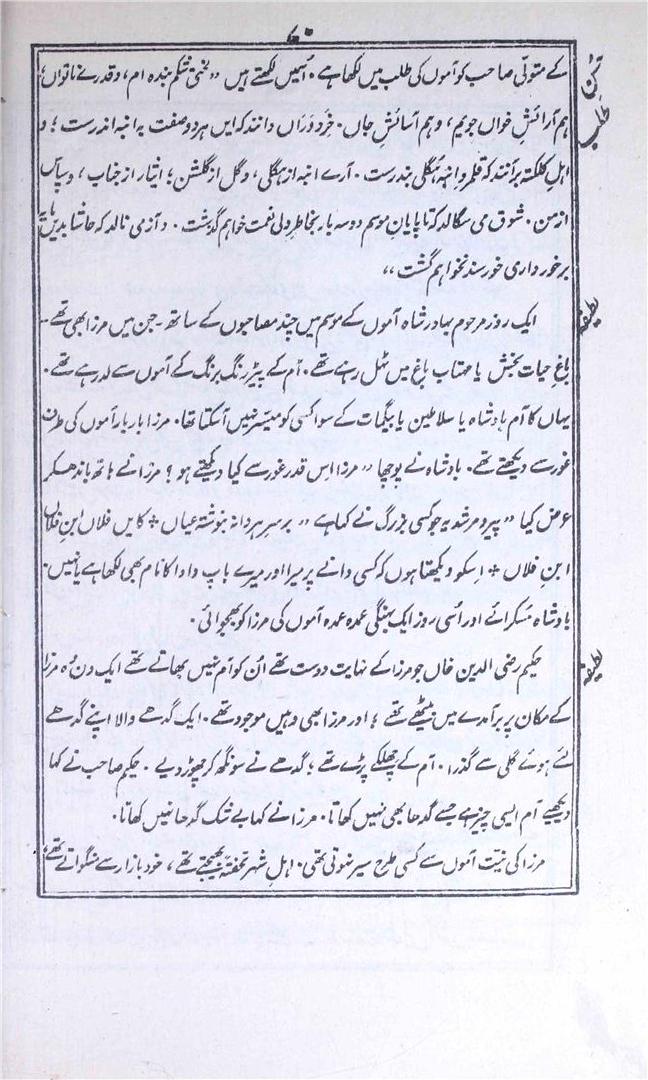 ۷۰
کے متولّی صاحب کو آموں کی طلب میں لکھا ہے۔ اُسمیں لکھتے ہیں ”لختی شکم بندہ ام، و قدرے ناتواں؛
حُسنِ طلب
ہم آرائشِ خواں جویم، و ہم آسائشِ جاں۔ خرد وراں دانند کہ ایں ہر دو صفت بہ انبہ اندرست؛ و
اہلِ کلکتہ برآنند کہ قلمروِ انبہ ہُگلی بندرست۔ آرے انبہ از ہگلی، و گل از گلشن؛ ایثار از جناب، و سپاس
از من۔ شوق می سگالد کہ تا پایانِ موسم دو سہ بار بخاطرِ ولی نعمت خواہم گذشت۔ و آز می نالد کہ حاشا بدیں مایہ
برخورداری خورسند نخواہم گشت“
لطیفہ
ایک روز مرحوم بہادر شاہ آموں کے موسم میں چند مصاحبوں کے ساتھ۔ جن میں مرزا بھی تھے۔
باغِ حیات بخش یا مہتاب باغ میں ٹہل رہے تھے۔ آم کے پیڑ رنگ برنگ کے آموں سے لد رہے تھے۔
یہاں کا آم بادشاہ یا سلاطین یا بیگمات کے سوا کسی کو میسّر نہیں آسکتا تھا۔ مرزا بار بار آموں کی طرف
غور سے دیکھتے تھے۔ بادشاہ نے پوچھا ”مرزا اِس قدر غور سے کیا دیکھتے ہو؟ مرزا نے ہاتھ باندھکر
عرض کیا ”پیر و مرشد یہ جو کسی بزرگ نے کہا ہے ”برسرِ ہر دانہ بنوشتہ عیاں ٭ کایں فلاں ابنِ فلاں
ابن فلاں ٭ اِسکو دیکھتا ہوں کہ کسی دانے پر میرا اور میرے باپ دادا کا نام بھی لکھا ہے یا نہیں۔
بادشاہ مُسکرائے اور اُسی روز ایک بہنگی عمدہ عمدہ آموں کی مرزا کو بھجوائی۔
لطیفہ
حکیم رضی الدین خاں جو مرزا کے نہایت دوست تھے اُن کو آم نہیں بھاتے تھے ایک دن وہ مرزا
کے مکان پر برآمدے میں بیٹھے تھے؛ اور مرزا بھی وہیں موجود تھے۔ ایک گدھے والا اپنے گدھے
لئے ہوئے گلی سے گذرا۔ آم کے چھلکے پڑے تھے؛ گدھے نے سونگھ کر چھوڑ دیے۔ حکیم صاحب نے کہا
دیکھیے آم ایسی چیز ہے جسے گدھا بھی نہیں کھاتا۔ مرزا نے کہا بے شک گدھا نہیں کھاتا۔
مرزا کی نیّت آموں سے کسی طرح سیر نہوتی تھی۔ اہلِ شہر تحفۃً بھیجتے تھے، خود بازار سے منگواتے تھے؛